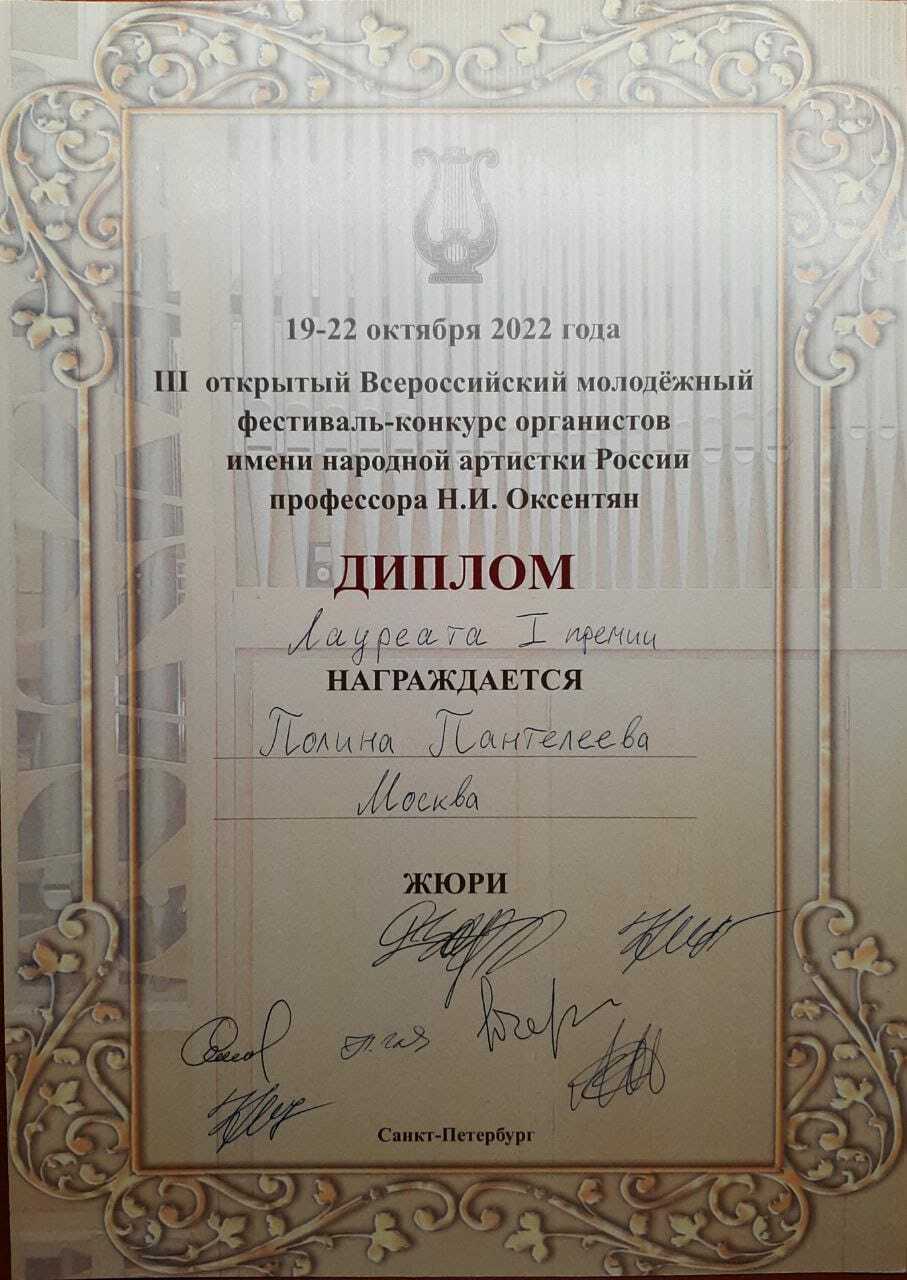 19-22 октября 2022 года
III открытый Всероссийский молодёжный
фестиваль-конкурс органистов
имени народной артистки России
профессора Н.И. Оксентян
ДИПЛОМ
Лауреата I премии
НАГРАЖДАЕТСЯ
Полина Пантелеева
Москва
ЖЮРИ
Санкт-Петербург